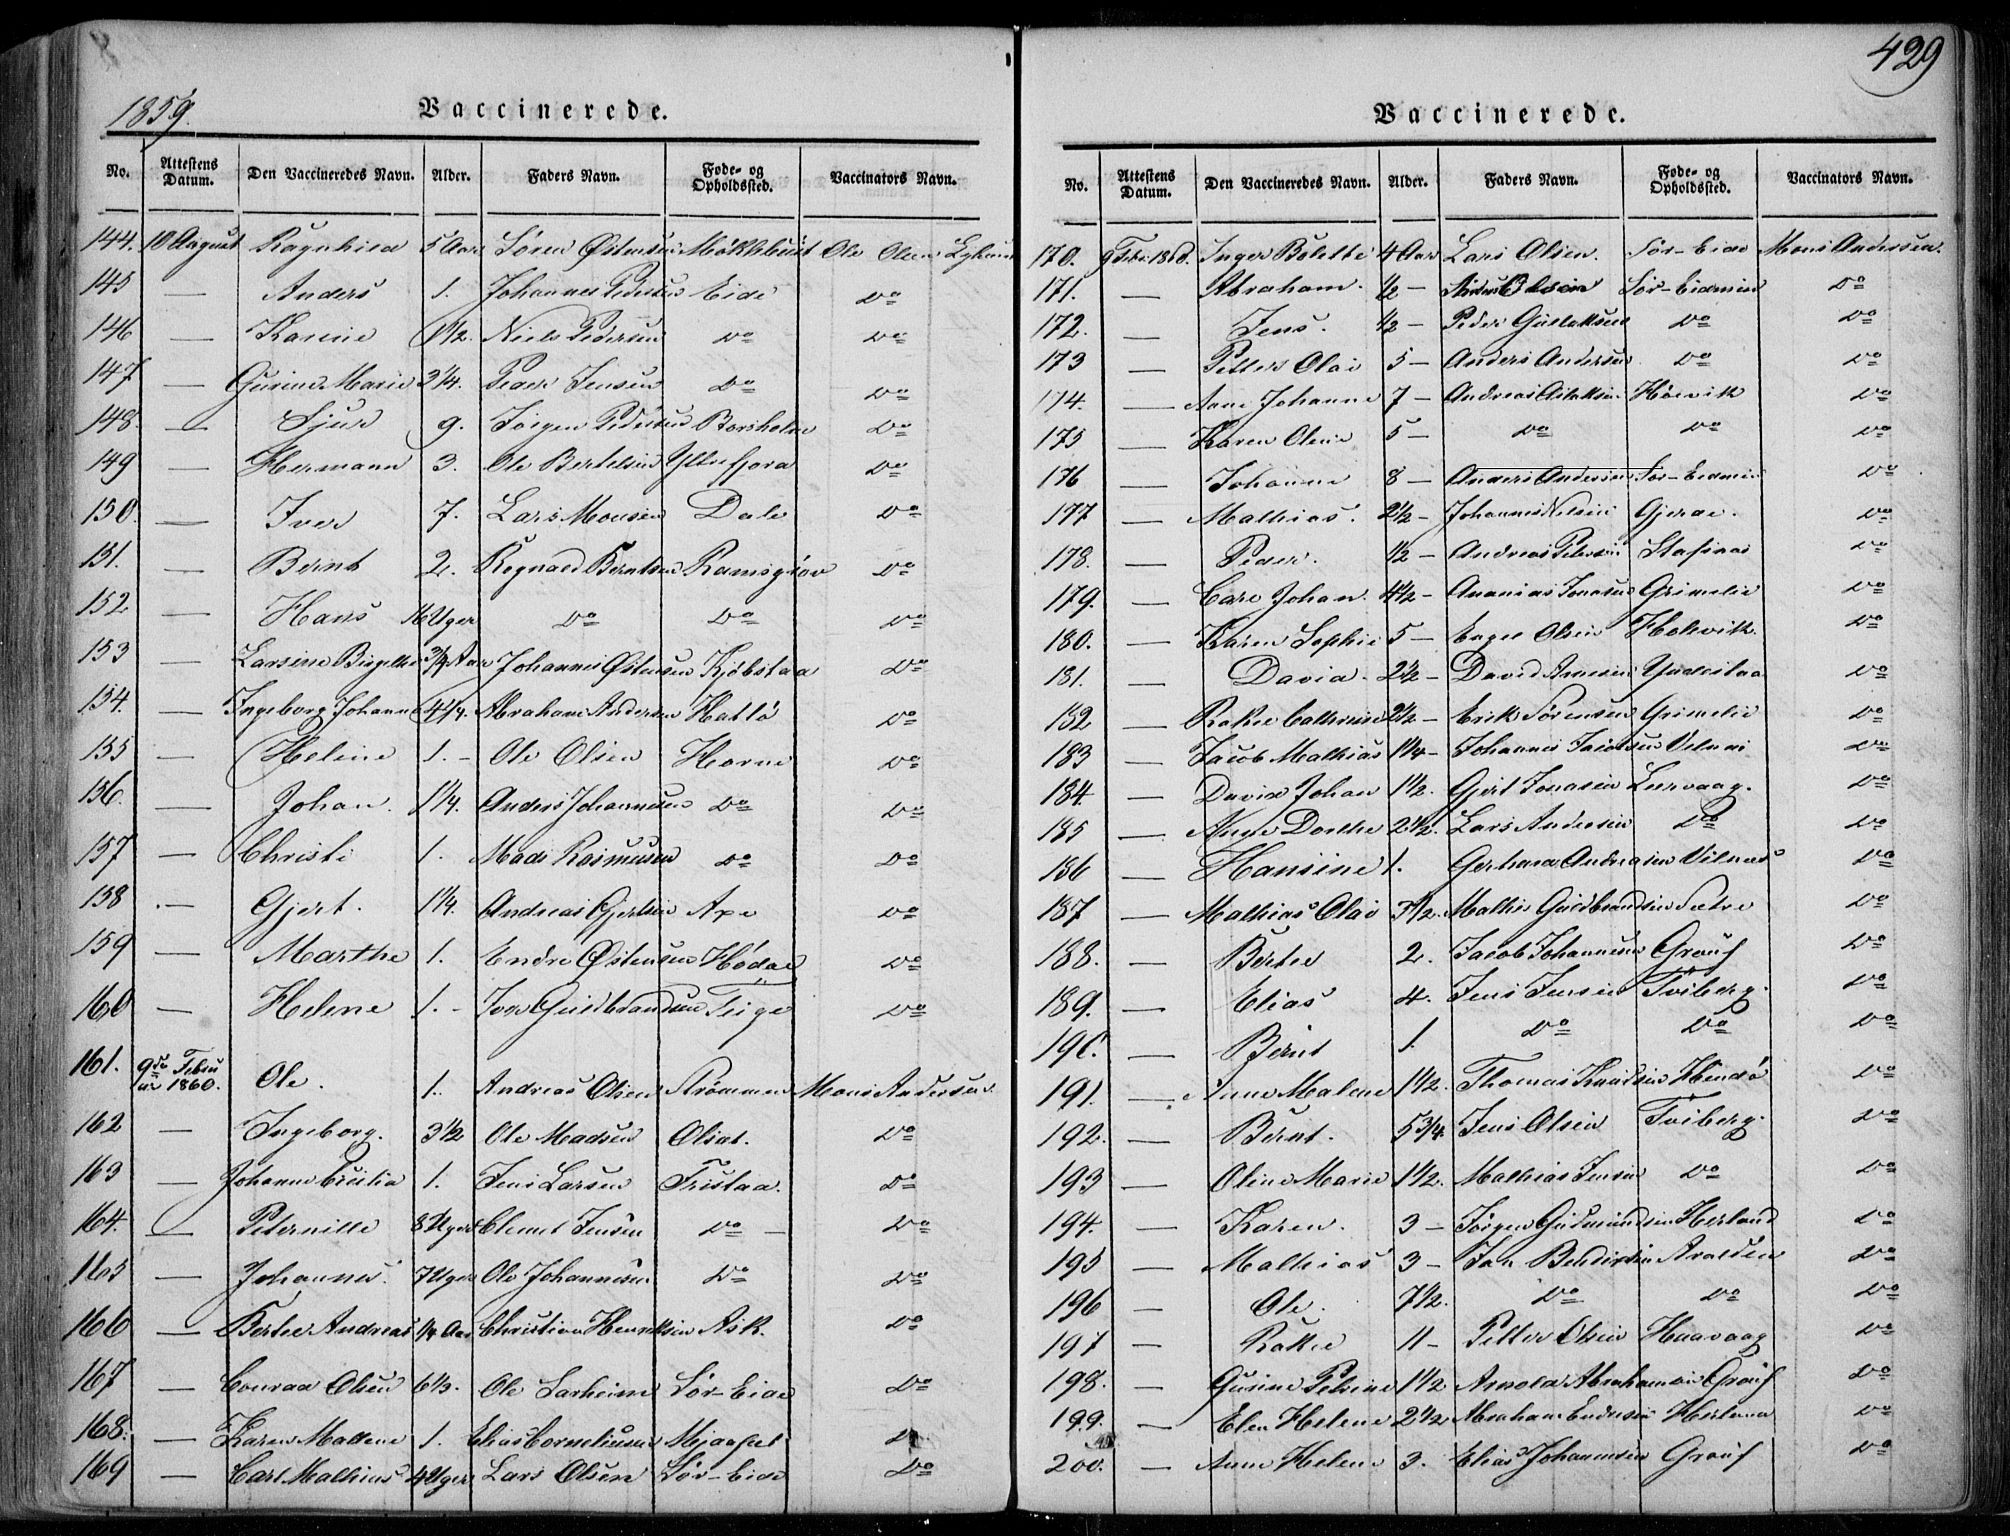 429
1859.
Vaccinerede.
No. Attestens Datum. Den Vaccineredes Navn. Alder. Faders Navn. Føde- og Opholdssted. Vaccinators Navn.
144. 10 August Ragnhild 5 Aar Søren Østensen Møkklebust Ole Olsen
145 — Anders 1. Johannes Pedersen Eide Do
146 — Karine 1½. Niels Pedersen Do Do
147 — Gurine Marie 2¼. Peder Jensen Do Do
148. — Sjur 9. Jørgen Pedersen Do
149 — Hermann 3. Ole Bertelsen Do
150. — Iver 7. Lars Monsen Dale Do
151. — Bernt 2. Rognald Berntsen Ramsgrov Do
152 — Hans 16 Uger Do Do Do
153 — Larsine Birgithe ¾ Aar Johannes Østensen Kjøbstad Do
154. — Ingeborg Johanne 4¼. Abraham Andersen Hatlø Do
155 — Helene 1. - Ole Olsen Horne Do
156. — Johan. 1¼. Anders Johannesen Do Do
157 — Christi 1. Mads Rasmusen Do Do
158 — Gjert. 1¼. Andreas Gjertsen Axe Do
159 — Marthe 1. Endre Østensen Hødal Do
160 — Helene 1. - Iver Guldbrandsen Teige Do
161. 9de Februar 1860. Ole. 1. Andreas Olsen Strømmen Mons Andersen
162 — Ingeborg. 3½ Ole Madsen Olset. Do
163 — Johanne Cecilia 1. Jens Larsen Tristaa. Do
164. — Peternille 8 Uger Clemet Jensen Do — Do
165 — Johannes. 7 Uger Ole Johannesen Do Do
166 — Berthe Andreas ¼ Aar Christian Henriksen Ask. Do
167 — Conrad Olsen Ole Larheim Sør-Eide Do
168. — Karen Mallene 1. Elias Corneliusen Mjaaset Do
169 — Carl Mathias 4 Uger Lars Olsen Sør-Eide Do
Vaccinerede.
No. Attestens Datum. Den Vaccineredes Navn. Alder. Faders Navn. Føde- og Opholdssted. Vaccinators Navn.
170. 9 Febr. 1860. Inger Bolette 4 Aar Lars Olsen. Sør-Eide Mons Andersen.
171. — Abraham. ½ — Olsen Do
172. — Jens. ½ — Peder Gustaksen Do Do
173 — Petter Olai 5 — Anders Andersen Do Do
174. — Anne Johanne 7 — Andreas Høevik Do
175 — Karen Oline 5 — Do Do Do
176 — Johanne 8 — Anders Andersen Do
177 — Mathias. 2½ — Johannes Nilsen Do
178. — Peder. ½ — Andreas Petersen Stafsnæs Do
179. — Carl Johan. 4½ — Ananias Jonasen Grimelie Do
180. — Karen Sophie 5 — Engel Olsen Holevik. Do
181. — David. 2½ — David Arnesen Yndestaa Do
182 — Rakel Cathrine 2½ — Erik Sørensen Grimelie Do
183 — Jacob Mathias 1¼ — Johannes Jacobsen Vilnæs Do
184 — David Johan 1½. Gjert Jonasen Leervaag. Do
185 — Anne Dorthe 2½. Lars Andersen Do Do
186 — Hansine 1. Gerhard Andreasen Vilnæs Do
187 — Mathias Olai 3½. Mathis Guldbrandsen Sætre Do
188. — Berthe 2. Jacob Johannesen Grøuf Do
189. — Elias 4. Jens Jensen Tviberg. Do
190. — Bernt 1. Do Do Do
191. — Anne Malene 1½. Thomas Knudsen Hindø Do
192. — Bernt. 5¾. Jens Olsen Tviberg. Do
193 — Oline Marie 1½. Mathias Jensen Do Do
194. — Karen. 3 — Jørgen Gudmundsen Herland Do
195 — Mathias 3 — Jan Bendixsen Araldsen Do
196 — Ole. 7½. Do Do Do
197 — Rakel 11 — Petter Olsen Haavaag Do
198. — Gurine Petrine 1½ Arnold Abrahamsen Grøuf Do
199. — Elen Helene 2½ Abraham Endresen Herland Do
200. — Anne Helene 3. Elias Johannesen Grøuf Do